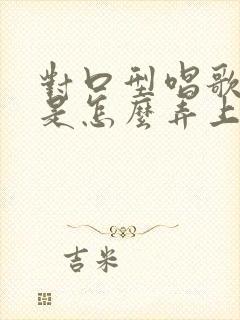 對口型唱歌
是怎麼弄上
吉米